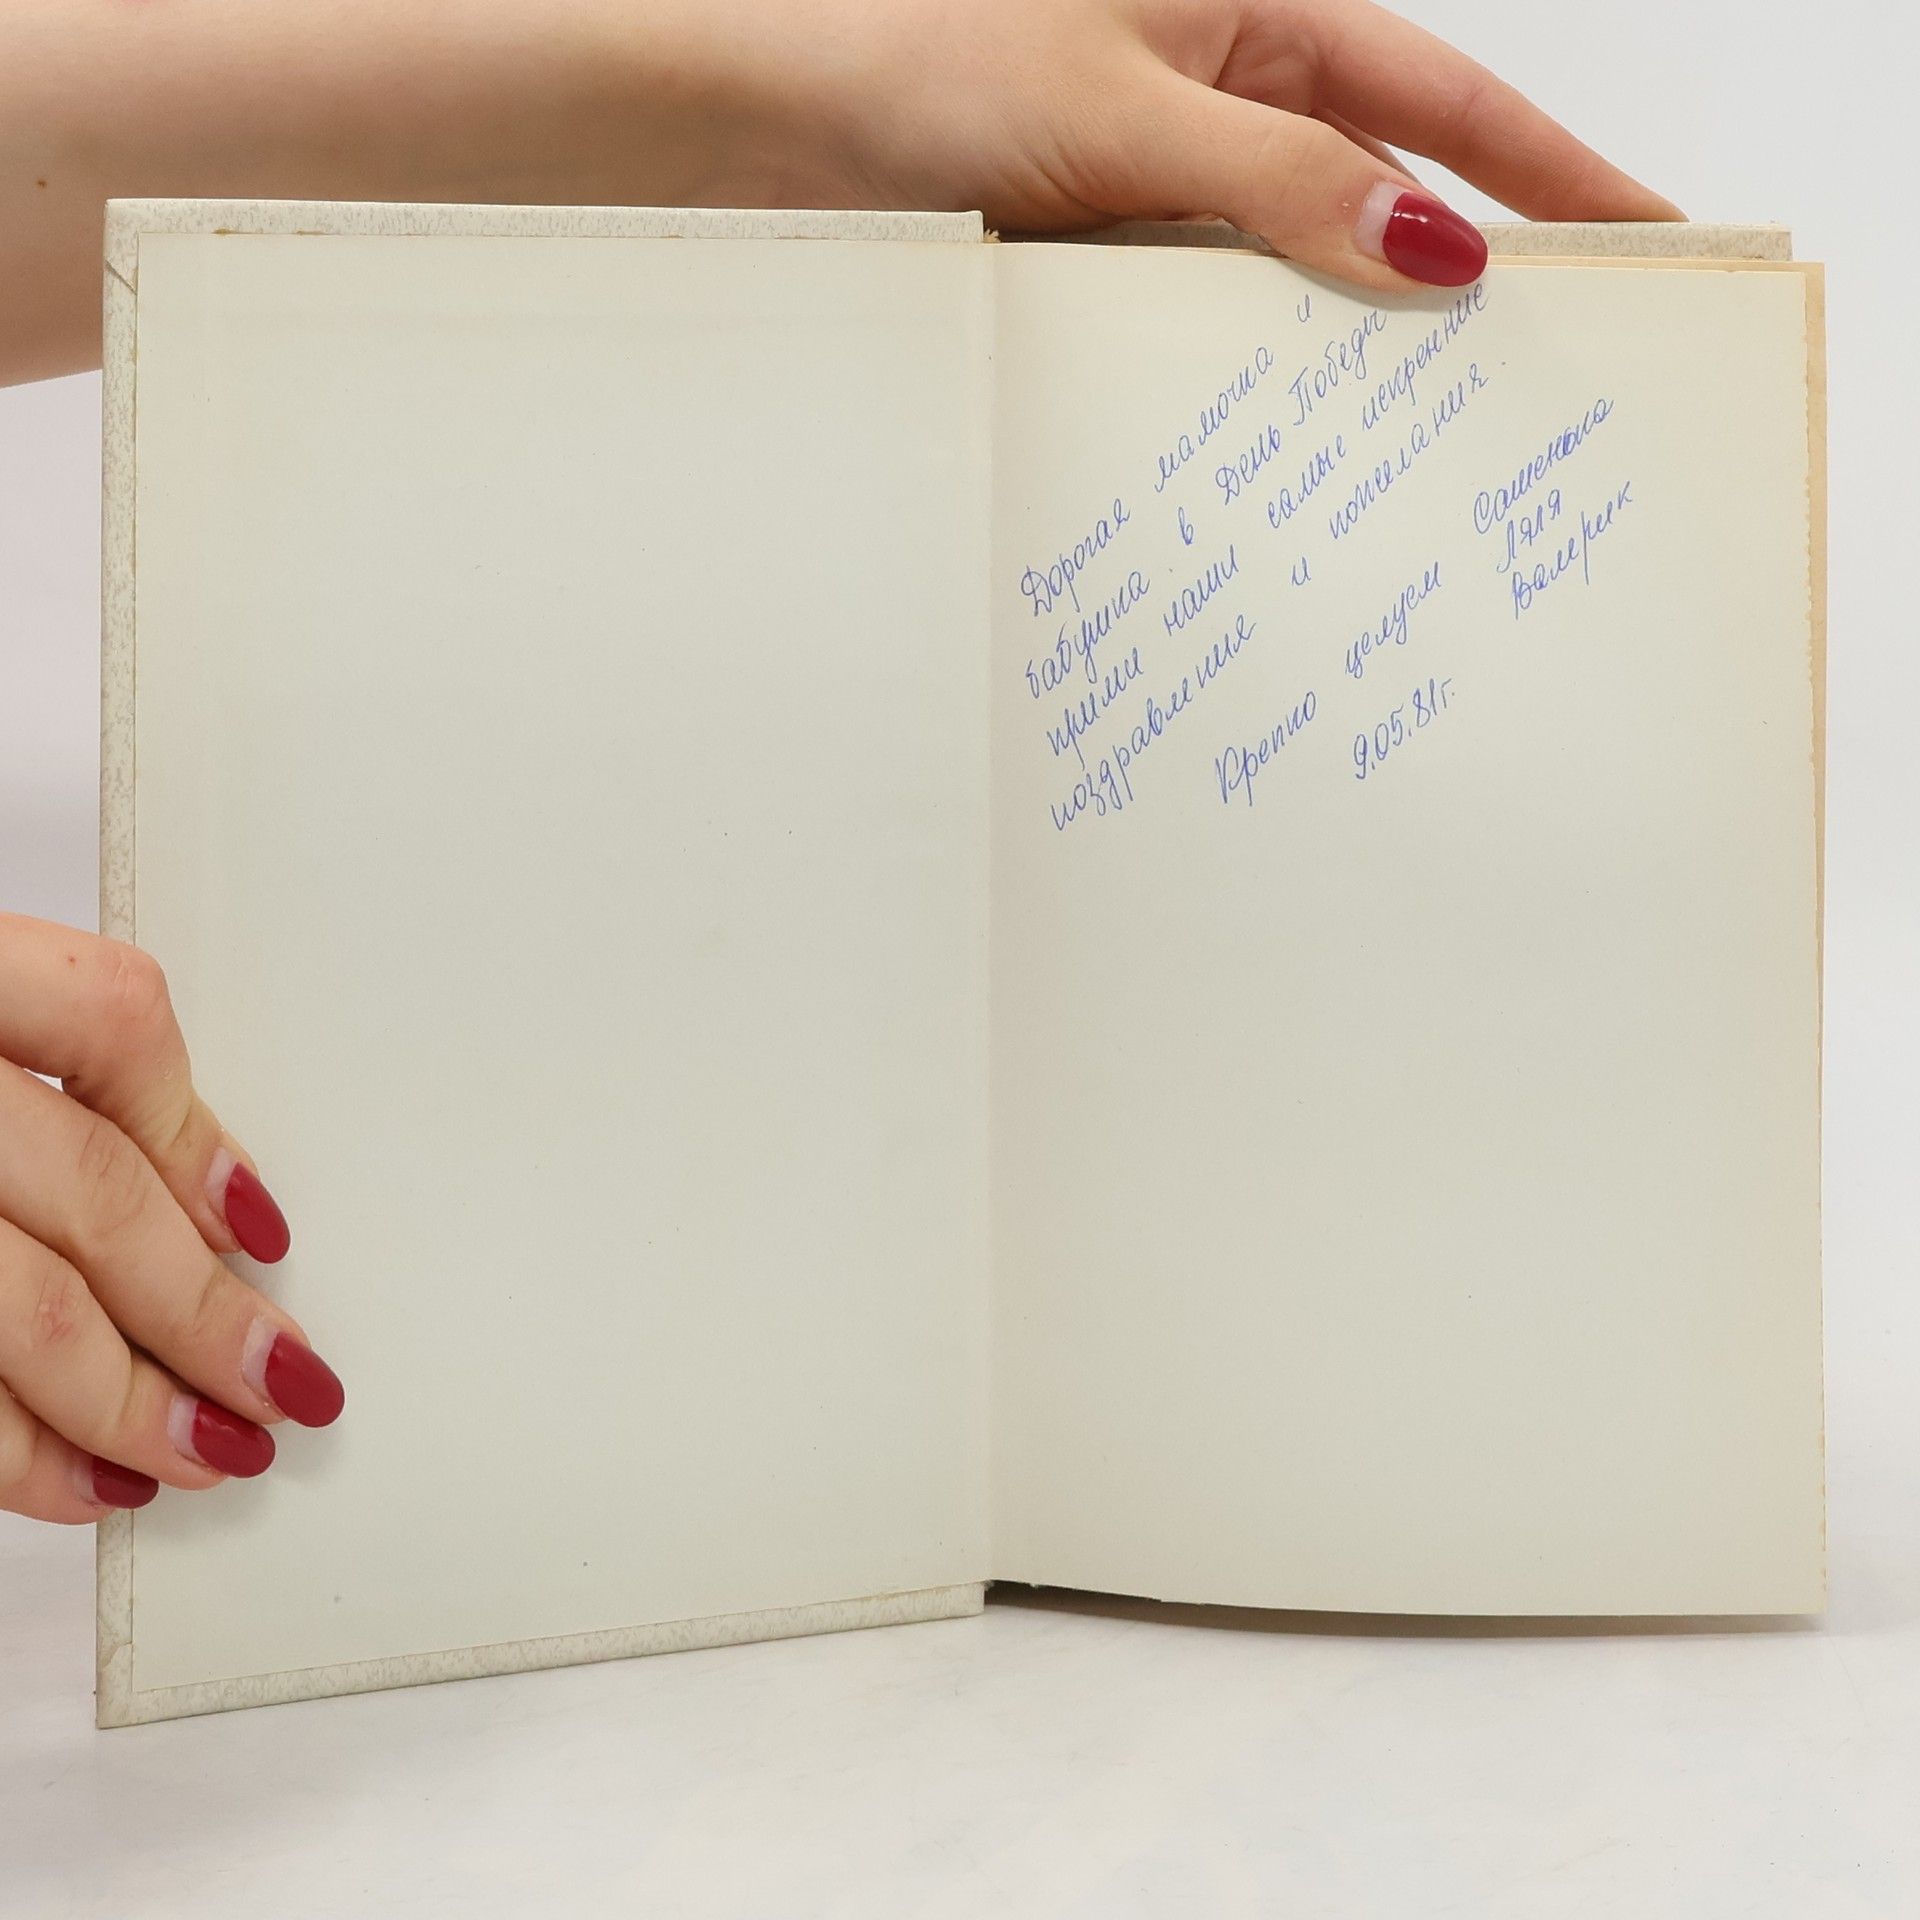 Дорогая мамочка и
бабушка в День Победы
прими наши самые искренние
поздравления и пожелания.
Крепко целуем Сашенька
Ляля
Валерик
9.05.81г.